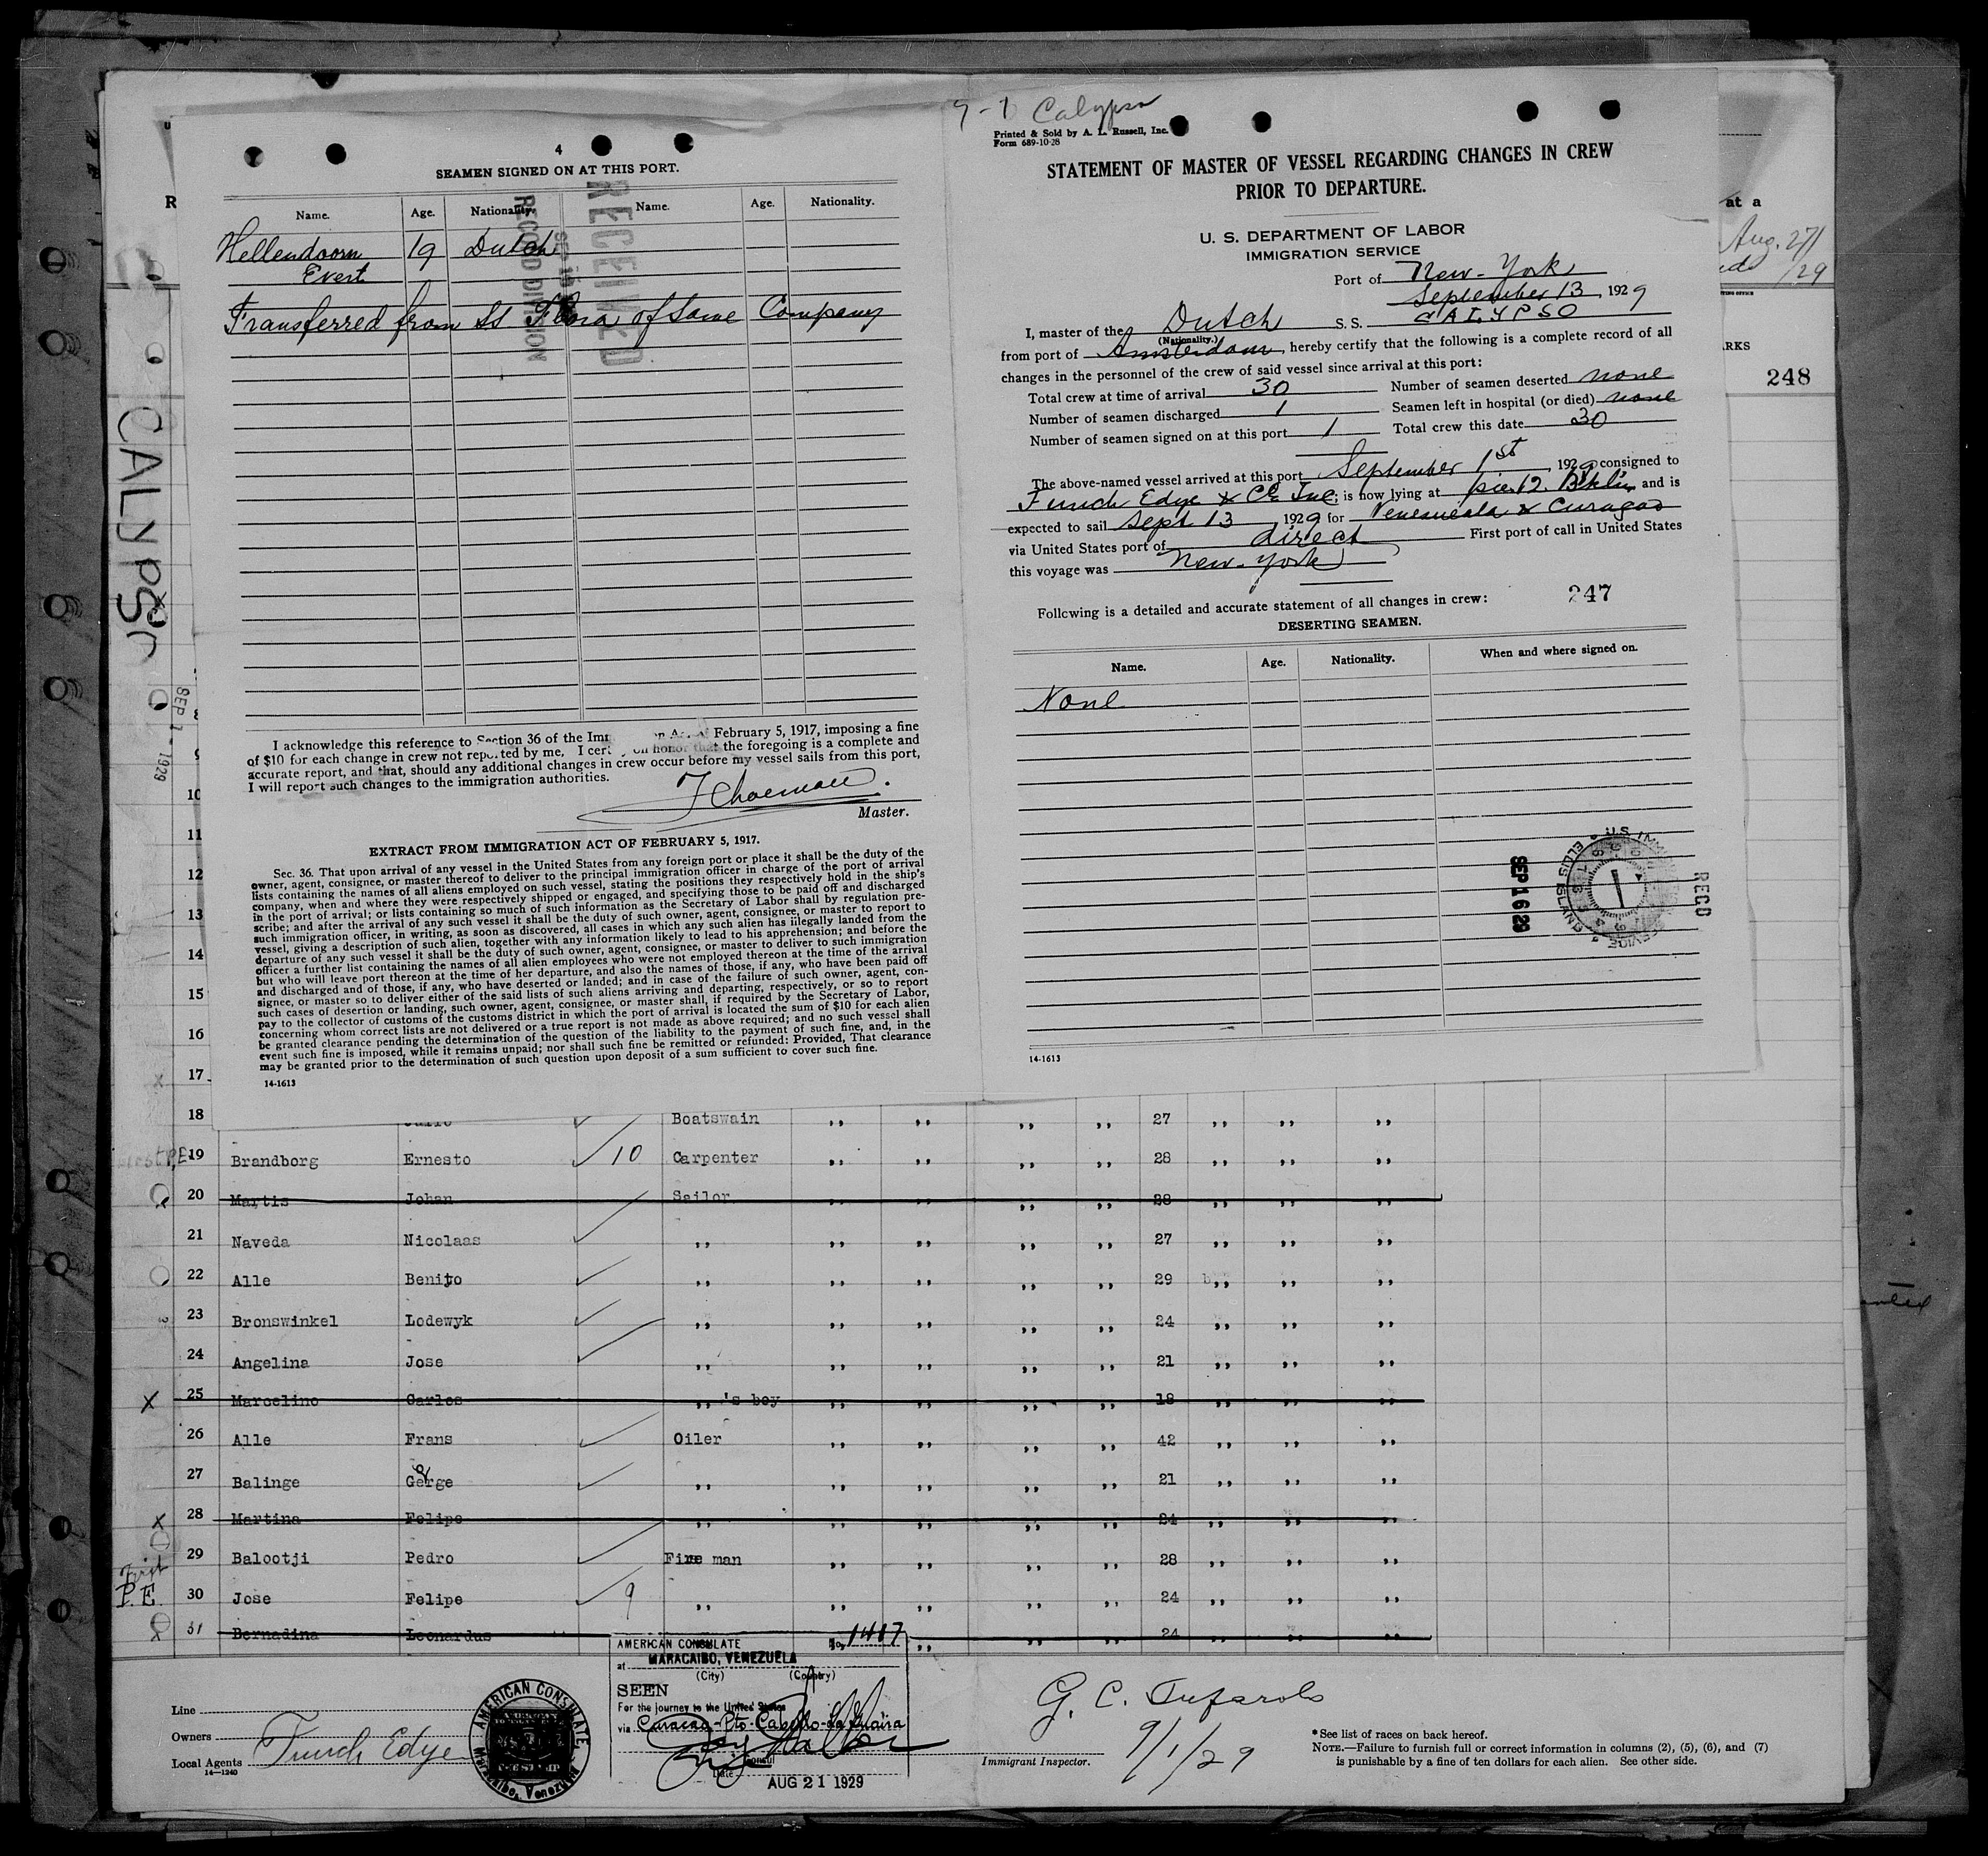 4
SEAMEN SIGNED ON AT THIS PORT.
Name. Age. Nationality. Name. Age. Nationality.
Hellendoorn 19 Dutch
Evert
Transferred from SS Flora of Same Company
RECEIVED
RECORD DIVISION
I acknowledge this reference to Section 36 of the Imm on Act of February 5, 1917, imposing a fine
of $10 for each change in crew not reported by me. I cert y on honor that the foregoing is a complete and
accurate report, and that, should any additional changes in crew occur before my vessel sails from this port,
I will report such changes to the immigration authorities.
Master.
EXTRACT FROM IMMIGRATION ACT OF FEBRUARY 5, 1917.
Sec. 36. That upon arrival of any vessel in the United States from any foreign port or place it shall be the duty of the
owner, agent, consignee, or master thereof to deliver to the principal immigration officer in charge of the port of arrival
lists containing the names of all aliens employed on such vessel, stating the positions they respectively hold in the ship's
company, when and where they were respectively shipped or engaged, and specifying those to be paid off and discharged
in the port of arrival; or lists containing so much of such information as the Secretary of Labor shall by regulation pre-
scribe; and after the arrival of any such vessel it shall be the duty of such owner, agent, consignee, or master to report to
such immigration officer, in writing, as soon as discovered, all cases in which any such alien has illegally landed from the
vessel, giving a description of such alien, together with any information likely to lead to his apprehension; and before the
departure of any such vessel it shall be the duty of such owner, agent, consignee, or master to deliver to such immigration
officer a further list containing the names of all alien employees who were not employed thereon at the time of the arrival
but who will leave port thereon at the time of her departure, and also the names of those, if any, who have been paid off
and discharged and of those, if any, who have deserted or landed; and in case of the failure of such owner, agent, con-
signee, or master so to deliver either of the said lists of such aliens arriving and departing, respectively, or so to report
such cases of desertion or landing, such owner, agent, consignee, or master shall, if required by the Secretary of Labor,
pay to the collector of customs of the customs district in which the port of arrival is located the sum of $10 for each alien
concerning whom correct lists are not delivered or a true report is not made as above required; and no such vessel shall
be granted clearance pending the determination of the question of the liability to the payment of such fine, and, in the
event such fine is imposed, while it remains unpaid; nor shall such fine be remitted or refunded: Provided, That clearance
may be granted prior to the determination of such question upon deposit of a sum sufficient to cover such fine.
14-1613
Calypso
Printed & Sold by A. L. Russell, Inc.
Form 689-10-28
STATEMENT OF MASTER OF VESSEL REGARDING CHANGES IN CREW
PRIOR TO DEPARTURE.
U. S. DEPARTMENT OF LABOR
IMMIGRATION SERVICE
Port of New-York
September 13, 1929
I, master of the Dutch S. S. CALYPSO
(Nationality.)
from port of Amsterdam, hereby certify that the following is a complete record of all
changes in the personnel of the crew of said vessel since arrival at this port:
Total crew at time of arrival 30 Number of seamen deserted none
Number of seamen discharged 1 Seamen left in hospital (or died) none
Number of seamen signed on at this port 1 Total crew this date 30
The above-named vessel arrived at this port September 1st, 1929 consigned to
Funch Edye & Co Inc; is now lying at pier 12. Bklin and is
expected to sail Sept 13, 1929 for Venezuela & Curaçao
via United States port of direct First port of call in United States
this voyage was New-York
Following is a detailed and accurate statement of all changes in crew: 247
DESERTING SEAMEN.
Name. Age. Nationality. When and where signed on.
None
SEP 16 29
RECD
U.S. IMMI
ELLIS ISLAND
14-1613
at a
Aug. 27/
/29
RKS
248
R
CALYPSO
SEP 1 - 1929
9
10
11
12
13
14
15
16
17
18 Boatswain ,, ,, ,, ,, 27 ,, ,, ,,
19 Brandborg Ernesto 10 Carpenter ,, ,, ,, ,, 28 ,, ,, ,,
20 Martis Johan Sailor ,, ,, ,, ,, 28 ,, ,, ,,
21 Naveda Nicolaas ,, ,, ,, ,, ,, 27 ,, ,, ,,
22 Alle Benito ,, ,, ,, ,, ,, 29 ,, ,, ,,
23 Bronswinkel Lodewyk ,, ,, ,, ,, ,, 24 ,, ,, ,,
24 Angelina Jose ,, ,, ,, ,, ,, 21 ,, ,, ,,
X 25 Marcelino Carlos ,, 's boy ,, ,, ,, ,, 18 ,, ,, ,,
26 Alle Frans Oiler ,, ,, ,, ,, 42 ,, ,, ,,
27 Balinge Gerge ,, ,, ,, ,, ,, 21 ,, ,, ,,
X 28 Martina Felipe ,, ,, ,, ,, ,, 24 ,, ,, ,,
29 Balootji Pedro Fire man ,, ,, ,, ,, 28 ,, ,, ,,
First
P.E. 30 Jose Felipe 9 ,, ,, ,, ,, ,, 24 ,, ,, ,,
X 31 Bernadina Leonardus ,, ,, ,, 24 ,, ,, ,,
Line
Owners
Local Agents Funch Edye
14-1240
AMERICAN CONSULATE
Maracaibo, Venezuela
AMERICAN CONSULATE No. 1417
at MARACAIBO, VENEZUELA
(City) (Country)
SEEN
For the journey to the United States
via Curacao-Pto-Cabello-La Guaira
Consul
Date AUG 21 1929
Immigrant Inspector.
9/1/29
*See list of races on back hereof.
NOTE.—Failure to furnish full or correct information in columns (2), (5), (6), and (7)
is punishable by a fine of ten dollars for each alien. See other side.